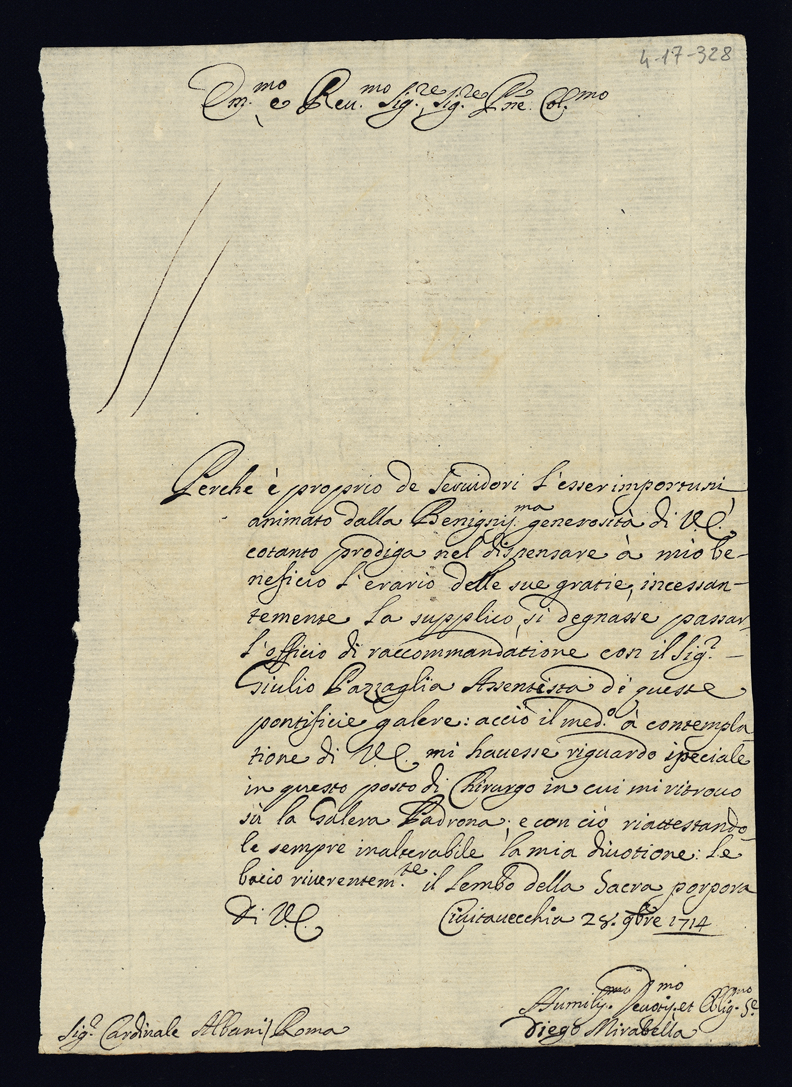 4-17-328
Em.mo e Reu.mo Sig.re Sig.re Pne. Col.mo
Perche è proprio de Seruidori l'esser importuni
animato dalla Benignis.ma generosità di V.E.
cotanto prodiga nel dispensare à mio be-
neficio l'erario delle sue gratie, incessan-
temente la supplico, si degnasse passar
l'officio di raccommandatione con il Sig.r
Giulio Pazzaglia Assentista di queste
pontificie galere: acciò il med.o à contempla
tione di V.E. mi hauesse riguardo speciale
in questo posto di Chirurgo in cui mi ritrouo
sù la Galera Padrona; e con ciò riattestando
le sempre inalterabile la mia diuotione: le
bacio riuerentem.te il lembo della Sacra porpora
di V.E. Ciuitauecchia 28. 9bre 1714
Humilis.mo Deuotis.mo et Oblig.mo Se.
Diego Mirabella
Sig.r Cardinale Albani / Roma